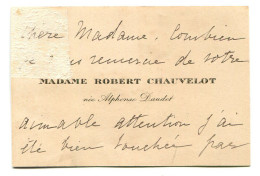 chère Madame. Combien
je vous remercie de votre
MADAME ROBERT CHAUVELOT
née Alphonse Daudet
aimable attention j'ai
été bien touchée par